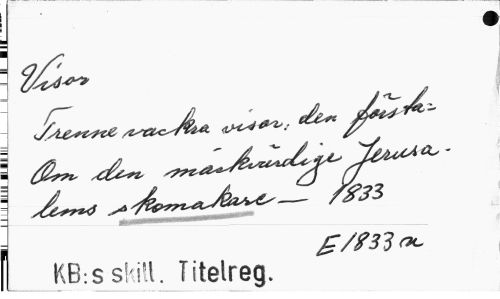 Visor
Trenne vackra visor: den första=
Om den märkvärdige Jerusa-
lems skomakare — 1833
E 1833 n
KB:s skill. Titelreg.